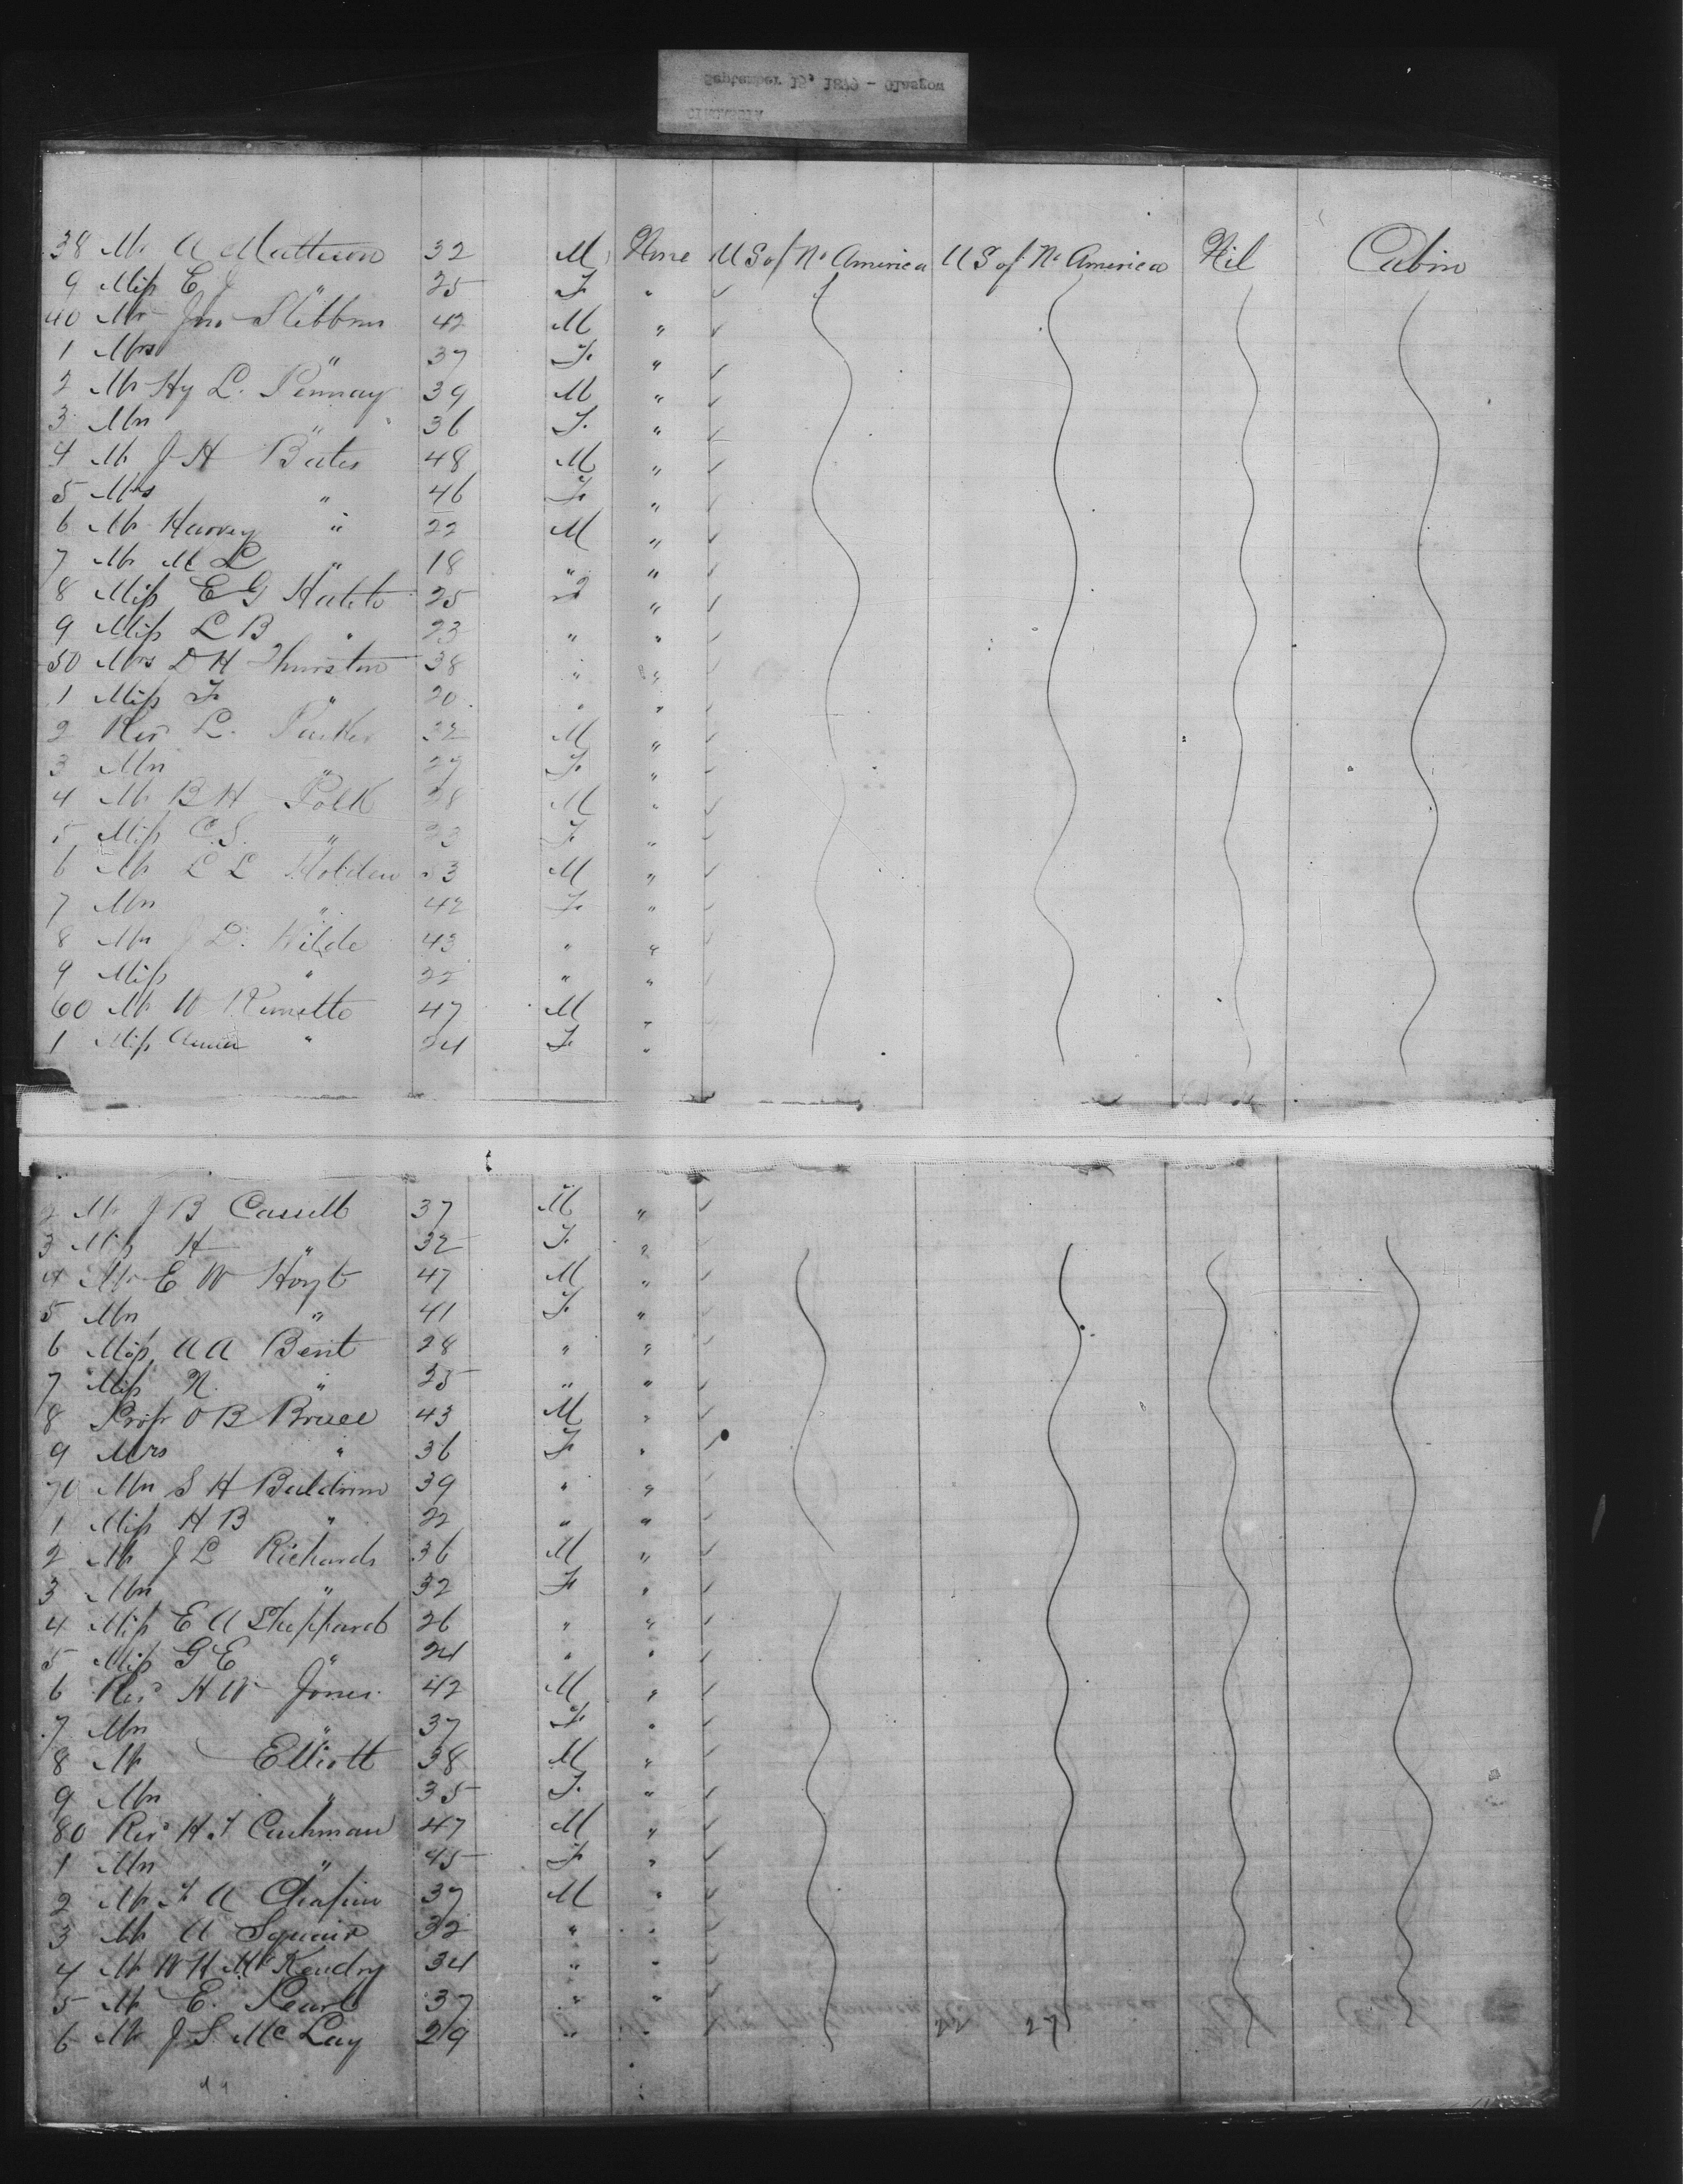 September 15, 1879 - Glasgow
CIRCASSIA
38 Mr A Mattison 32 M None U S of No America U S of No America Nil Cabin
9 Miss E J " 25 F "
40 Mr Jno Stibbins 42 M "
1 Mrs " 37 F "
2 Mr Hy L. Pennay 39 M "
3 Mrs " 36 F. "
4 Mr J H Bates 48 M "
5 Mrs " 46 F. "
6 Mr Harvey " 22 M "
7 Mr M L " 18 " "
8 Miss E G 25 F "
9 Miss L B " 23 " "
50 Mrs D H Thurston 38 " "
1 Miss F. " 20 " "
2 Revd L. Parker 32 M "
3 Mrs " 27 F. "
4 Mr B H Polk 28 M "
5 Miss C. S. " 23 F "
6 Mr L L Holden 53 M "
7 Mrs " 42 F. "
8 Mrs J D. Wilde 43 " "
9 Miss " 22 " "
60 Mr W 47 M "
1 Miss Annie " 24 F "
2 Mr J B Cassell 37 M "
3 Miss H " 32 F. "
4 Mr E W Hoyt 47 M "
5 Mrs " 41 F "
6 Miss A A Bent 28 " "
7 Miss N. " 25 " "
8 Profr O B Bruce 43 M "
9 Mrs " 36 F "
70 Mrs S H Baldwin 39 " "
1 Miss H B " 22 " "
2 Mr J L Richards 36 M "
3 Mrs " 32 F "
4 Miss E A Sheppard 26 " "
5 Miss G E " 24 " "
6 Revd H W Jones 42 M "
7 Mrs " 37 F "
8 Mr Elliott 38 M "
9 Mrs " 35 F. "
80 Revd H. T Cushman 47 M "
1 Mrs " 45 F "
2 Mr F A Chapin 37 M "
3 Mr A Squire 32 " "
4 Mr W H McKendry 34 " "
5 Mr E. Pearl 37 " "
6 Mr J S McLay 29 " " 22 27